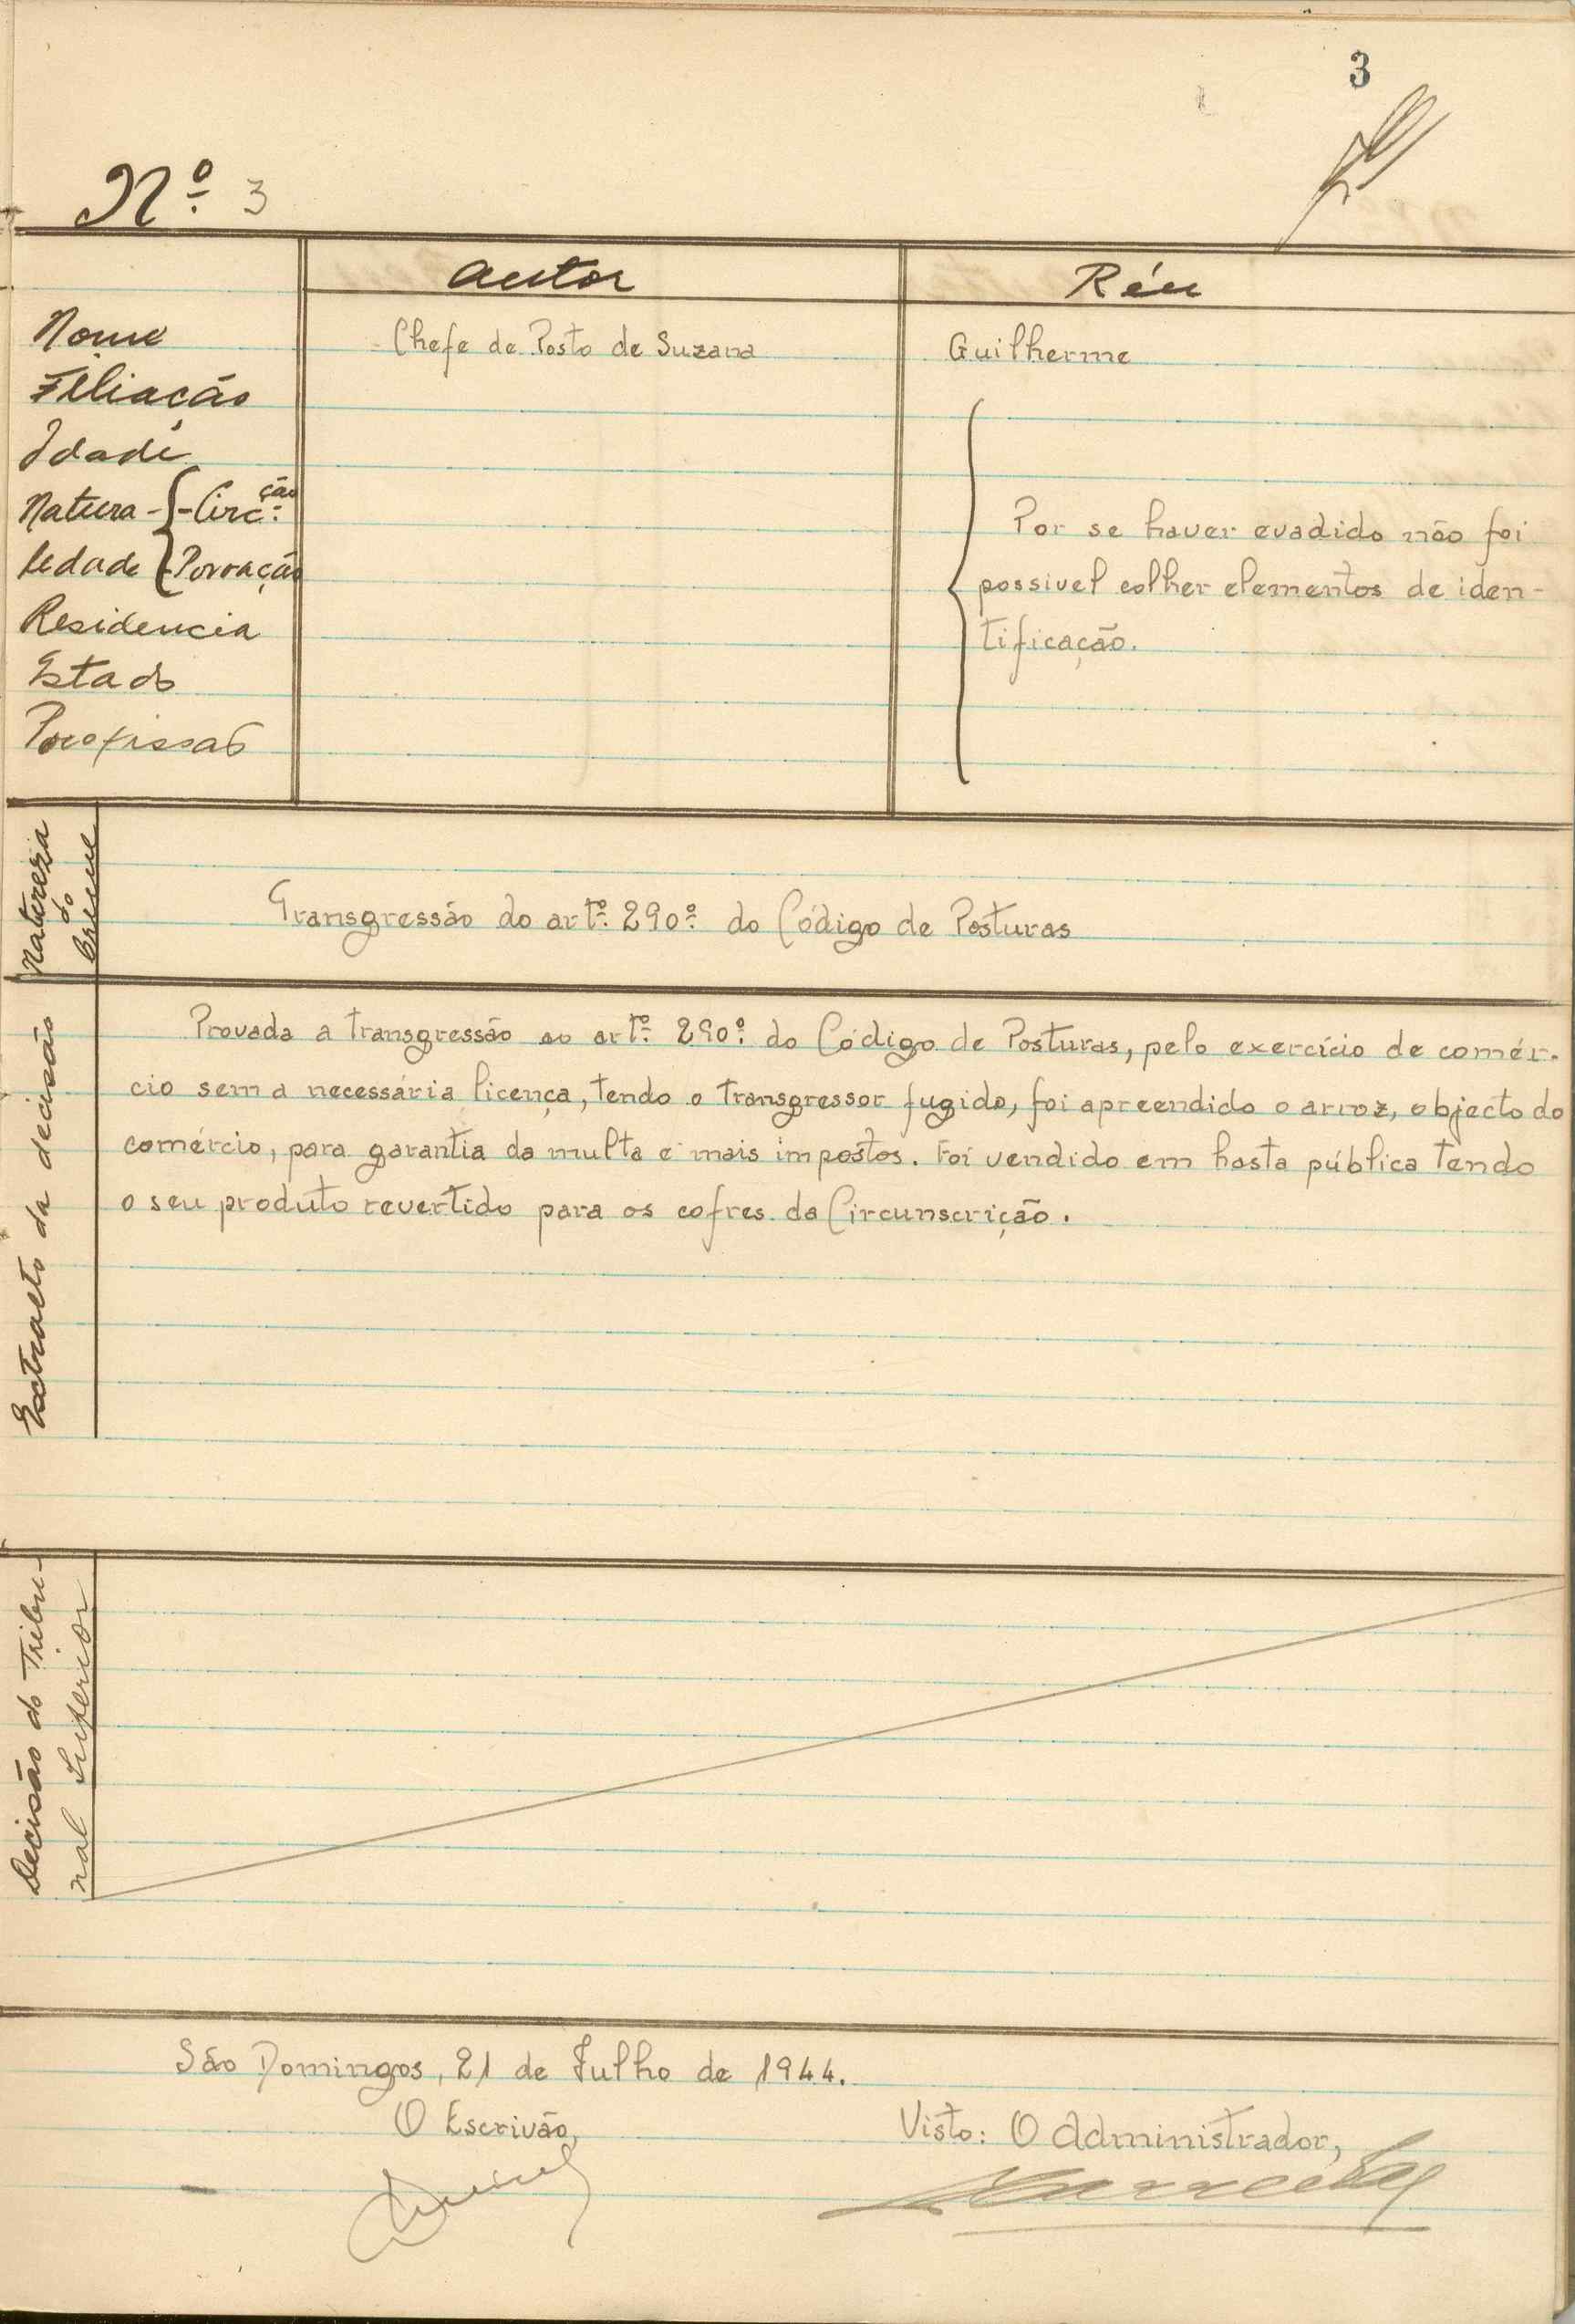 3
Nº 3
Autor
Réu
Nome
Chefe de Posto de Suzana
Guilherme
Filiação
Idade
Natura-
lidade
Circ.ção
Povoação
Residencia
Estado
Profissão
Por se haver evadido não foi
possivel colher elementos de iden-
tificação.
Natureza
do
Crime
Transgressão do artº. 290º. do Código de Posturas
Extracto da decisão
Provada a transgressão ao artº. 290º. do Código de Posturas, pelo exercício de comér-
cio sem a necessária licença, tendo o transgressor fugido, foi apreendido o arroz, objecto do
comércio, para garantia da multa e mais impostos. Foi vendido em hasta pública tendo
o seu produto revertido para os cofres da Circunscrição.
Decisão do Tribu-
nal Superior
São Domingos, 21 de Julho de 1944.
O Escrivão,
Visto: O Administrador,